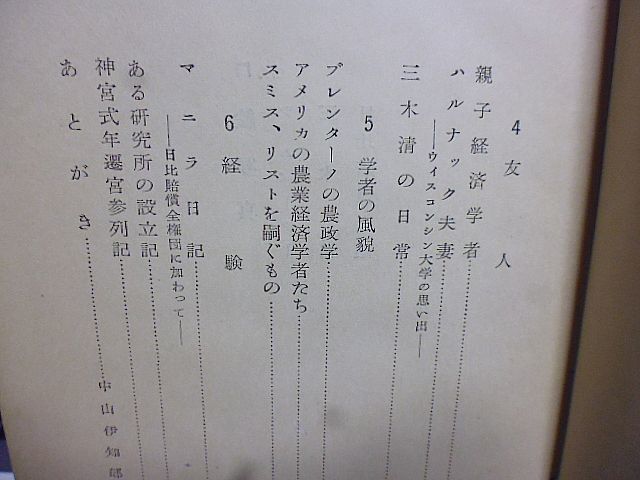 4 友人
親子経済学者
ハルナック夫妻
――ウイスコンシン大学の思い出――
三木清の日常
5 学者の風貌
ブレンターノの農政学
アメリカの農業経済学者たち
スミス、リストを嗣ぐもの
6 経験
マニラ日記
――日比賠償全権団に加わって――
ある研究所の設立記
神宮式年遷宮参列記
あとがき……中山伊知郎